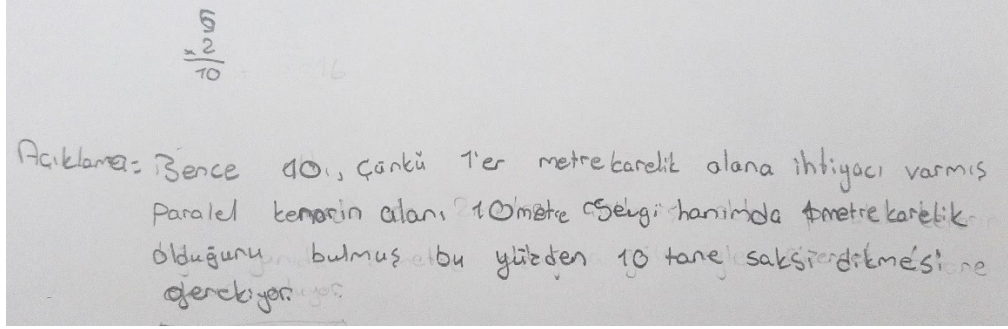 5
x 2
10
Açıklama = Bence 10, çünkü 1'er metrekarelik alana ihtiyacı varmış
Paralel kenarin alanı 10metre Sevgi hanımda 1metre karelik
olduğunu bulmuş bu yüzden 10 tane saksı dikmesi
gerekiyor.